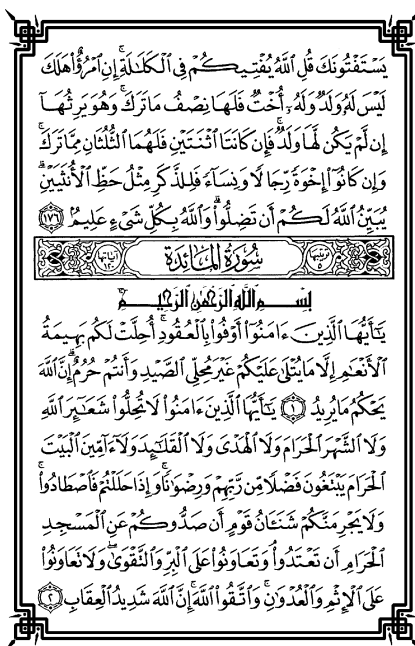 يَسْتَفْتُونَكَ قُلِ ٱللَّهُ يُفْتِيكُمْ فِى ٱلْكَلَـٰلَةِ ۚ إِنِ ٱمْرُؤٌا۟ هَلَكَ
لَيْسَ لَهُۥ وَلَدٌ وَلَهُۥٓ أُخْتٌ فَلَهَا نِصْفُ مَا تَرَكَ ۚ وَهُوَ يَرِثُهَآ
إِن لَّمْ يَكُن لَّهَا وَلَدٌ ۚ فَإِن كَانَتَا ٱثْنَتَيْنِ فَلَهُمَا ٱلثُّلُثَانِ مِمَّا تَرَكَ ۚ
وَإِن كَانُوٓا۟ إِخْوَةً رِّجَالًا وَنِسَآءً فَلِلذَّكَرِ مِثْلُ حَظِّ ٱلْأُنثَيَيْنِ ۗ
يُبَيِّنُ ٱللَّهُ لَكُمْ أَن تَضِلُّوا۟ ۗ وَٱللَّهُ بِكُلِّ شَىْءٍ عَلِيمٌۢ ١٧٦
ترتيبها ٥ سُورَةُ المَائِدَةِ آياتها ١٢٠
بِسْمِ ٱللَّهِ ٱلرَّحْمَـٰنِ ٱلرَّحِيمِ
يَـٰٓأَيُّهَا ٱلَّذِينَ ءَامَنُوٓا۟ أَوْفُوا۟ بِٱلْعُقُودِ ۚ أُحِلَّتْ لَكُم بَهِيمَةُ
ٱلْأَنْعَـٰمِ إِلَّا مَا يُتْلَىٰ عَلَيْكُمْ غَيْرَ مُحِلِّى ٱلصَّيْدِ وَأَنتُمْ حُرُمٌ ۗ إِنَّ ٱللَّهَ
يَحْكُمُ مَا يُرِيدُ ١ يَـٰٓأَيُّهَا ٱلَّذِينَ ءَامَنُوا۟ لَا تُحِلُّوا۟ شَعَـٰٓئِرَ ٱللَّهِ
وَلَا ٱلشَّهْرَ ٱلْحَرَامَ وَلَا ٱلْهَدْىَ وَلَا ٱلْقَلَـٰٓئِدَ وَلَآ ءَآمِّينَ ٱلْبَيْتَ
ٱلْحَرَامَ يَبْتَغُونَ فَضْلًا مِّن رَّبِّهِمْ وَرِضْوَٰنًا ۚ وَإِذَا حَلَلْتُمْ فَٱصْطَادُوا۟ ۚ
وَلَا يَجْرِمَنَّكُمْ شَنَـَٔانُ قَوْمٍ أَن صَدُّوكُمْ عَنِ ٱلْمَسْجِدِ
ٱلْحَرَامِ أَن تَعْتَدُوا۟ ۘ وَتَعَاوَنُوا۟ عَلَى ٱلْبِرِّ وَٱلتَّقْوَىٰ ۖ وَلَا تَعَاوَنُوا۟
عَلَى ٱلْإِثْمِ وَٱلْعُدْوَٰنِ ۚ وَٱتَّقُوا۟ ٱللَّهَ ۖ إِنَّ ٱللَّهَ شَدِيدُ ٱلْعِقَابِ ٢